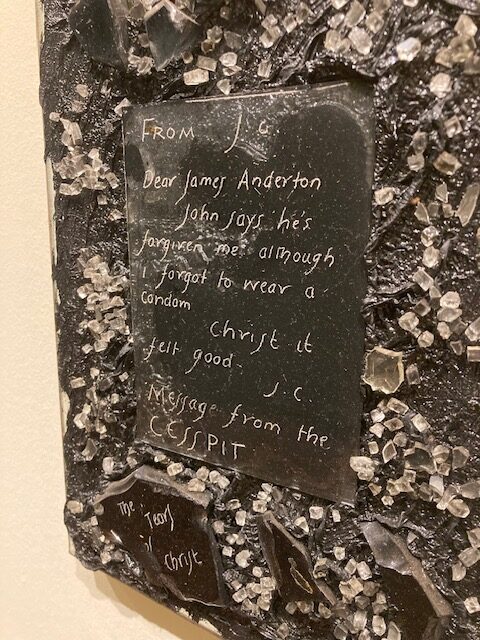 FROM J C
Dear James Anderton
John says he's
forgiven me although
I forgot to wear a
condom
Christ it
felt good.
J.C.
Message from the
CESSPIT
The Tears
of
Christ